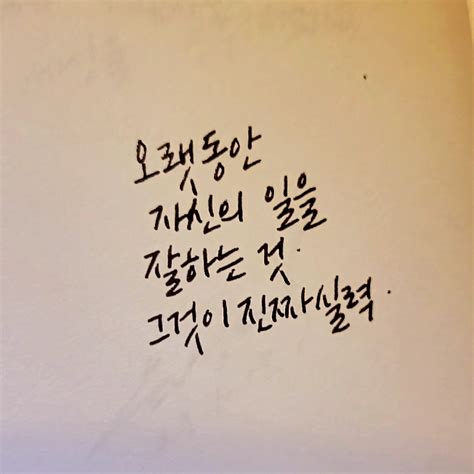 오랫동안
자신의 일을
잘하는 것.
그것이 진짜 실력.